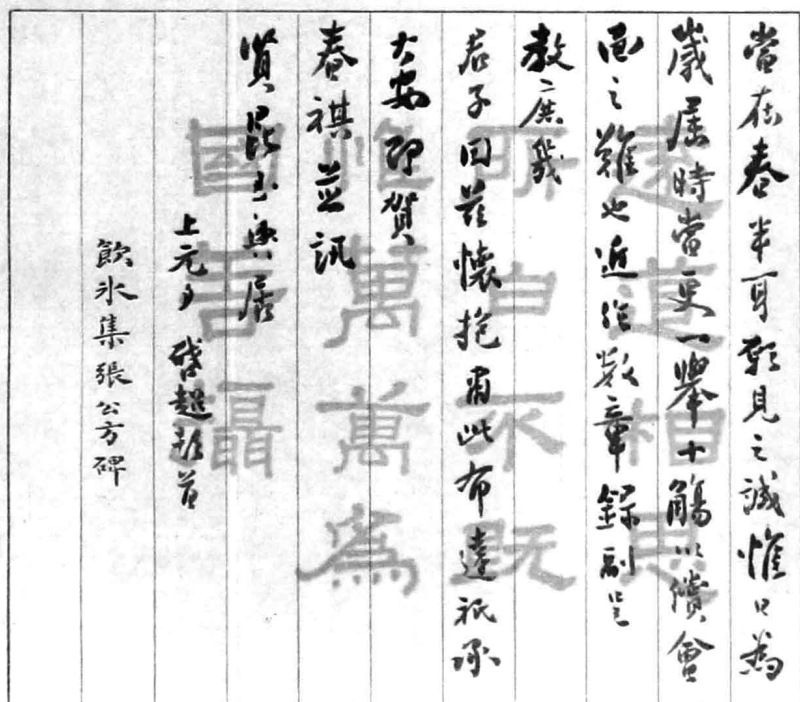 當在春半耳願見之誠惟日為
歲居時當更一舉十觴以償會
面之難也近作數章錄副呈
教庶幾
君子因茲懷抱肅此布達祇承
大安即賀
春祺並訊
賢昆玉興居
上元夕啟超頓首
飲冰集張公方碑
遠道相思
所白不既
惟萬萬為
國善攝